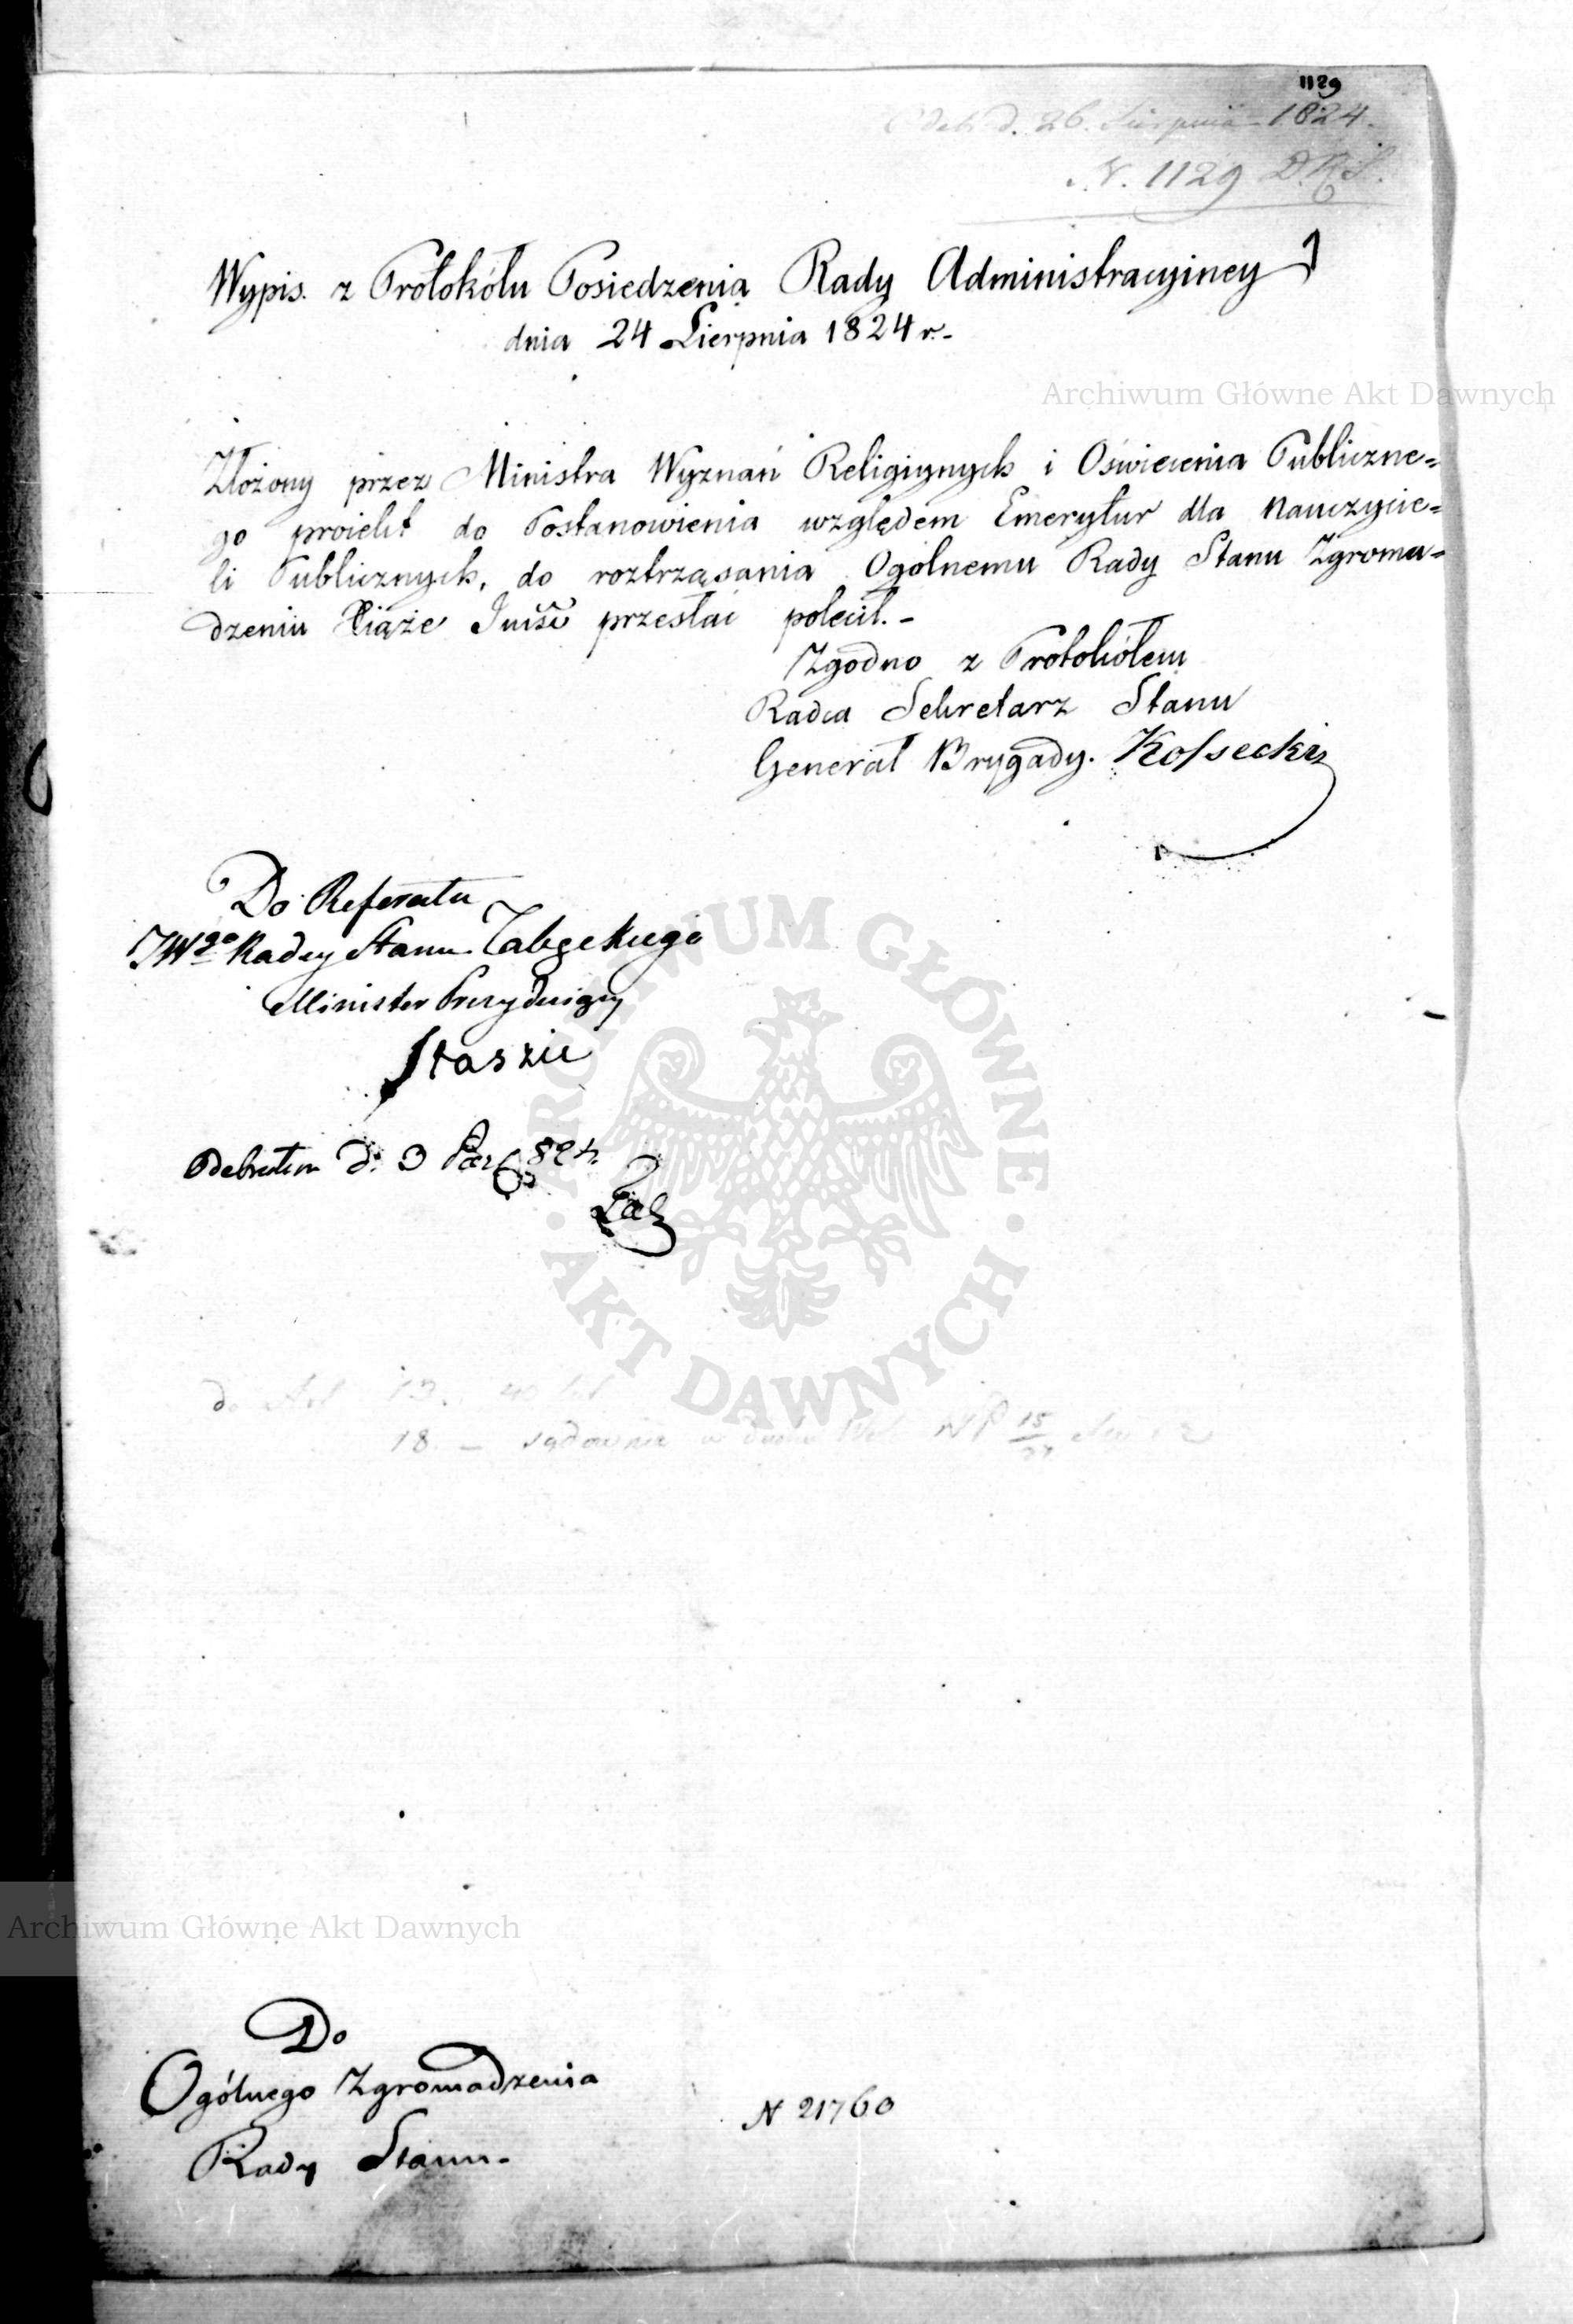 1129
Odeb. d. 26. Sierpnia 1824.
N. 1129 D.R.S.
Wypis z Protokółu Posiedzenia Rady Administracyiney
dnia 24 Sierpnia 1824 r.-
Archiwum Główne Akt Dawnych
Złożony przez Ministra Wyznań Religiynych i Oświecenia Publiczne=
go proiekt do Postanowienia względem Emerytur dla Nauczycie=
li Publicznych, do roztrząsania Ogólnemu Rady Stanu Zgroma=
dzeniu Xiąże przesłać polecił.-
Zgodno z Protokółem
Radca Sekretarz Stanu
Generał Brygady. Kossecki
Do Referatu
JWgo Radcy Stanu
Minister Prezyduiący
Staszic
ARCHIWUM GŁÓWNE · AKT DAWNYCH ·
Odebrałem d. 3 824.
do Art 13. 40 lat
18. - sądownie w NP 15
Archiwum Główne Akt Dawnych
Do
Ogólnego Zgromadzenia
Rady Stanu.
N 21760